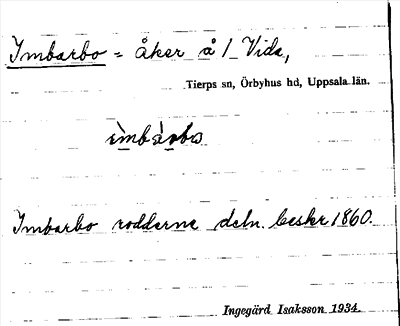 Imbarbo = åker å 1 Vida,
Tierps sn, Örbyhus hd, Uppsala län.
ìmbàrbo
Imbarbo rodderne deln. beskr 1860.
Ingegärd Isaksson 1934